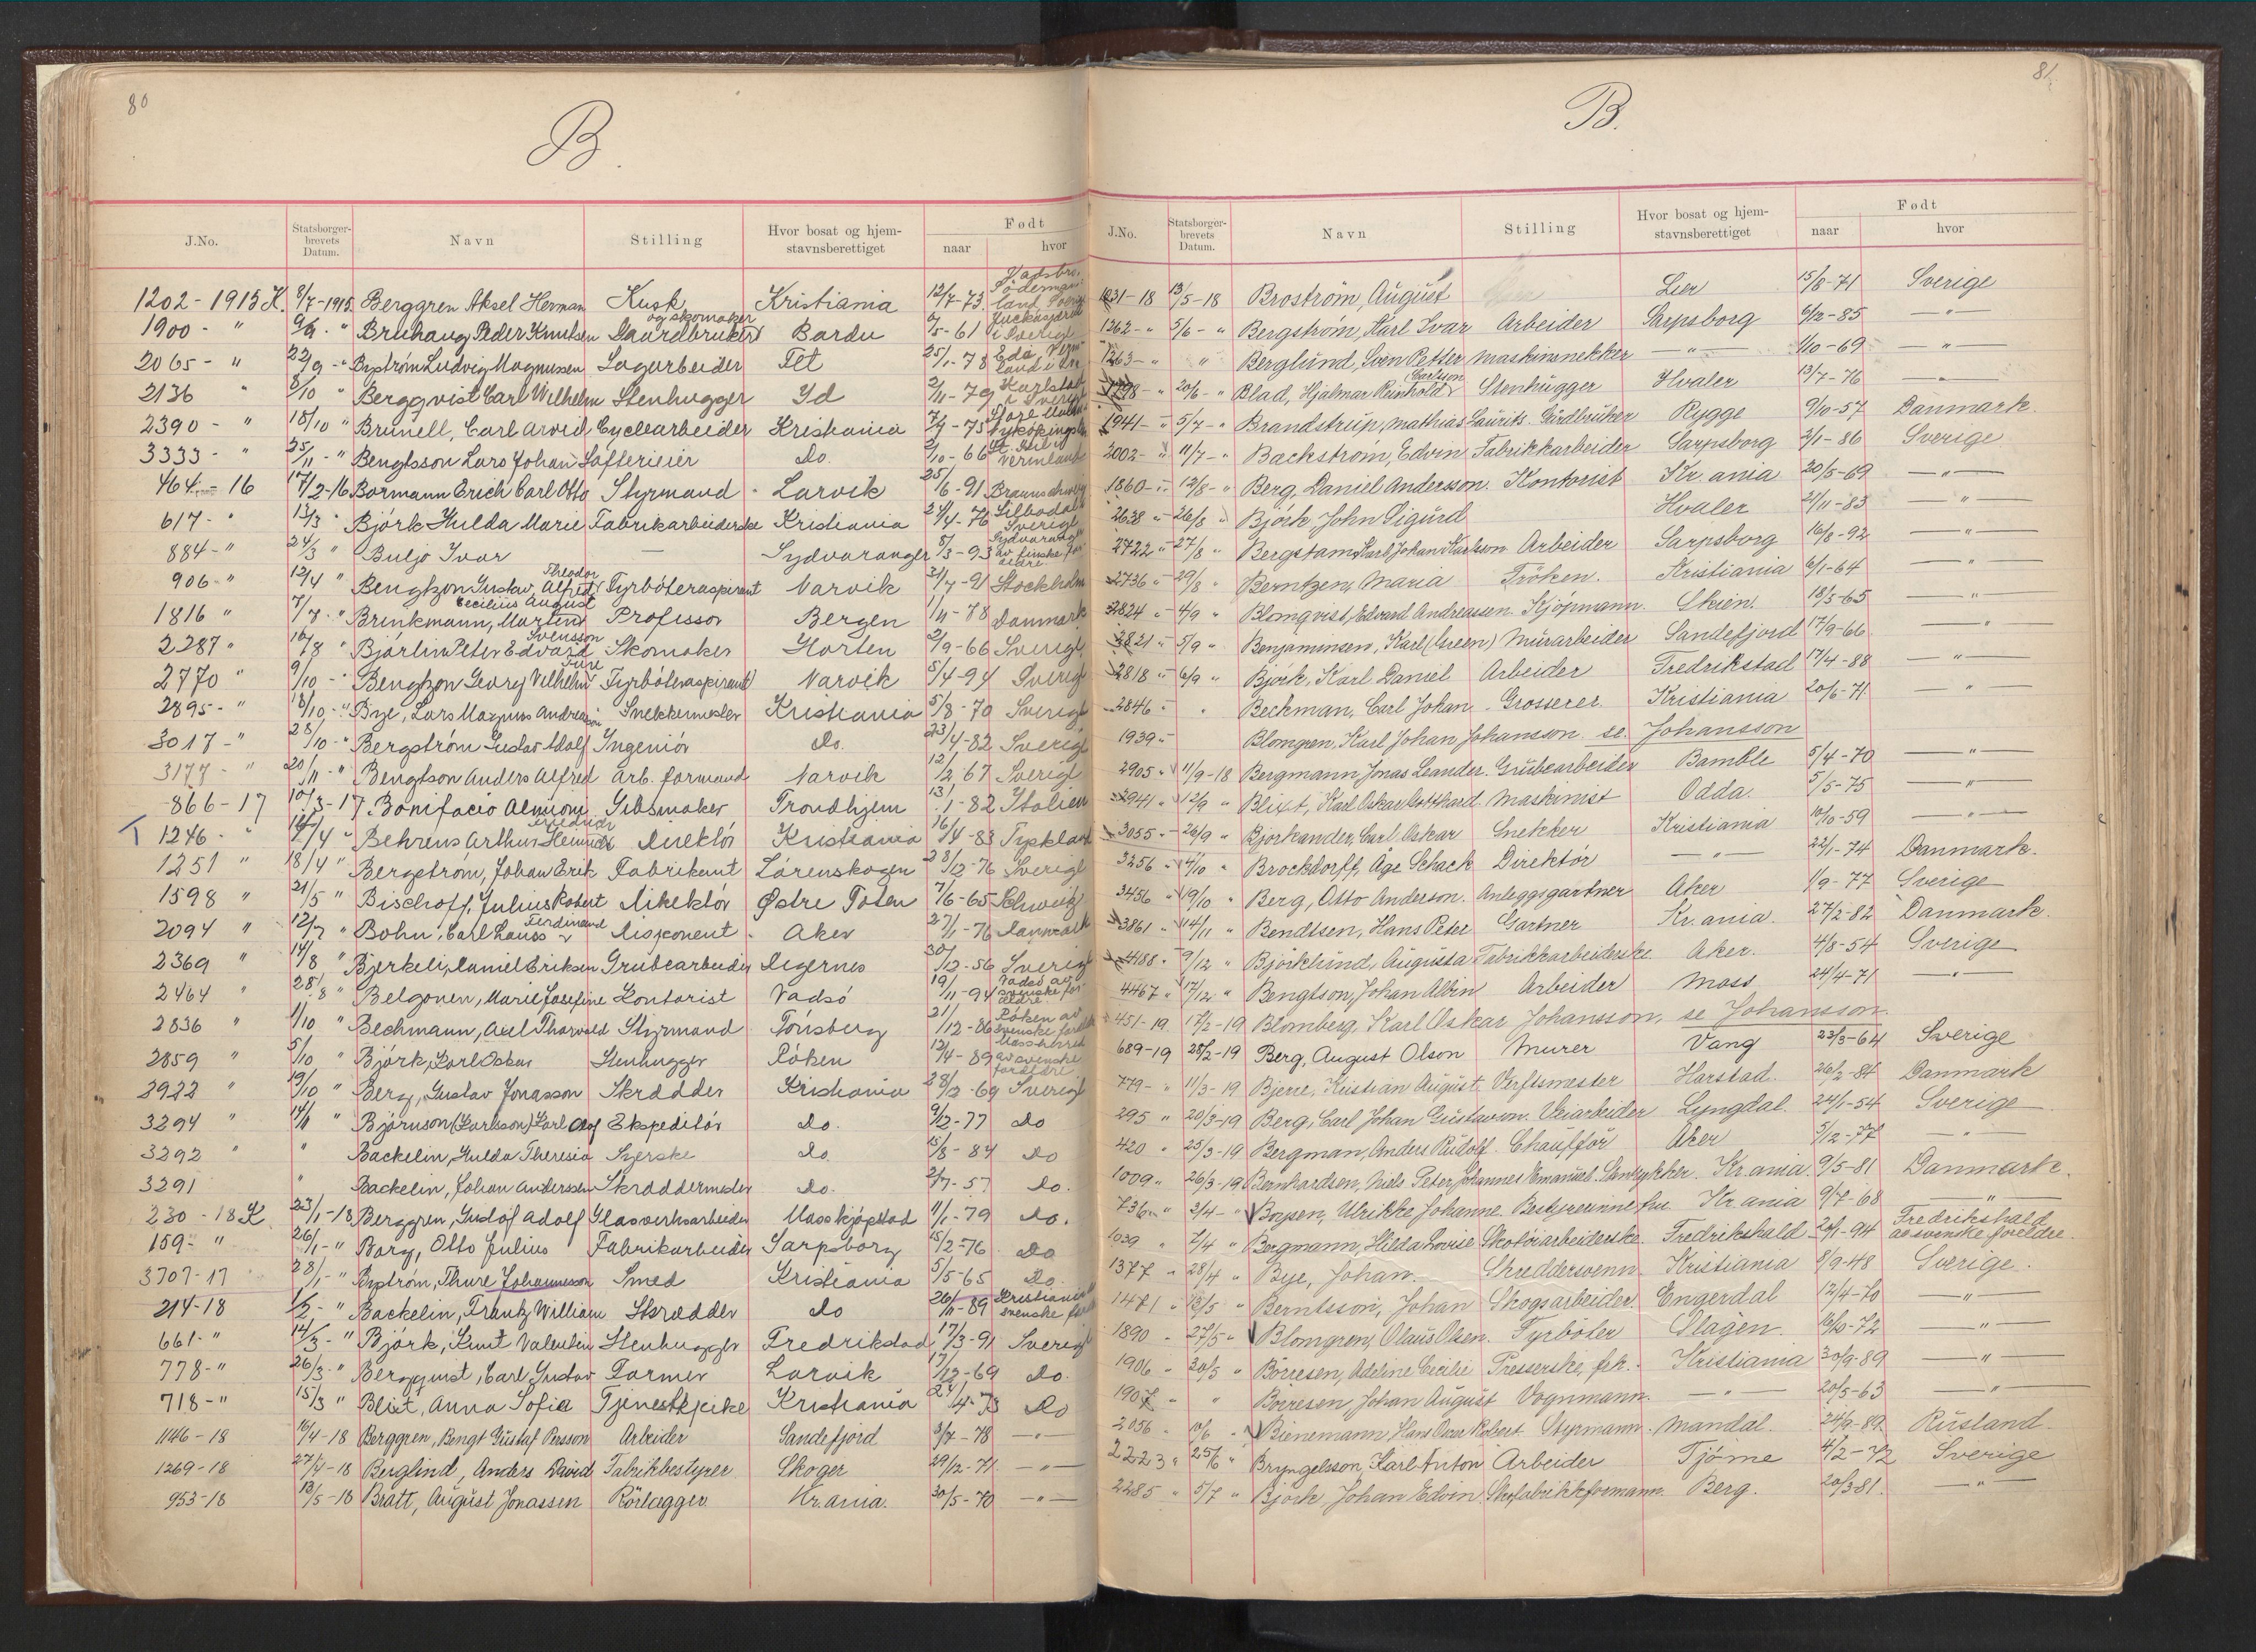 80
B.
J.No. Statsborgerbrevets Datum. Navn Stilling Hvor bosat og hjemstavnsberettiget Født naar hvor
1202-1915 K. 8/7-1915. Berggren Aksel Herman Kusk Kristiania 12/7-73. Södermanland Sverige
1900 - " " Bruhaug Peder Knutsen Gaardbruker og skomaker Bardu /5-61 i Sverige
2065 - " 22/9 - " Byström Ludvig Magnusen Sagarbeider Fet 25/1-78 Eda, Vermland i Sv
2136 " 8/10 " Bergqvist Carl Wilhelm Stenhugger Id 2/11-79 Karlstad i Sverige
2390 - " 18/10 " Brunell, Carl Arvid Cyclearbeider Kristiania 7/9-75 Nykøpingslen
3333 - " 25/11 - " Bengtsson Lars Johan Safterieier do. 2/10-66 Vermland
464 - 16 17/2-16 Bormann Erich Carl Otto Styrmand Larvik 25/6-91 Braunschweig
617 - " 13/3 " Björk Hulda Marie Fabrikarbeiderske Kristiania 24/4-76 Silbodal Sverige
884 - " 24/3 " Buljo Ivar — Sydvaranger 8/3-93 Sydvaranger av finske foreldre
906 - " 12/4 " Bengtzon Gustav Alfred Theodor Fyrböteraspirant Narvik 21/7-91 Stockholm
1816 " 7/7 - " Brinkmann, Martin Cecilius August Professor Bergen 1/11-78 Danmark
2287 " 16/8 " Björlin Peter Edvard Svensson Skomaker Horten 2/9-66 Sverige
2770 " 9/10 - " Bengtzon Georg Vilhelm Ture Fyrböteraspirant Narvik 5/4-94 Sverige
2895 - " 18/10 - " Bye, Lars Magnus Andreasson Snekkermester Kristiania 5/8-70 Sverige
3017 - " 28/10 - " Bergström Gustav Adolf Ingeniör do. 23/4-82 Sverige
3177 - " 20/11 - " Bengtson Anders Alfred Arb. formand Narvik 12/2-67 Sverige
866-17 10/3-17. Bonifacio Gibsmaker Trondhjem 13/1-82 Italien
1246 - " /4 " Behrens Arthur Heinrich Friedrich Direktör Kristiania 16/4-83 Tyskland
1251 " 18/4 " Bergström, Johan Erik Fabrikant Lörenskogen 28/12-76 Sverige
1598 " 21/5 " Bischoff, Julius Robert Direktör Østre Toten 7/6-65 Schweitz
2094 " 12/7 " Bohn, Carl Lauss Ferdinand Disponent Aker 27/1-76 Danmark
2369 " 14/8 " Bjerkeli, Daniel Eriksen Grubearbeider Degernes 30/12-56 Sverige
2464 " 28/8 " Belgonen, Marie Josefine Kontorist Vadsö 19/11-94 Vadsö av svenske foreldre
2836 " 1/10 " Bechmann, Axel Thorvald Styrmand Tönsberg 21/12-86 Röken av svenske foreldre
2859 " 5/10 " Björk, Karl Oskar Stenhugger Röken 12/4-89 av svenske foreldre
2922 " 19/10 " Berg, Gustav Jonasson Skrædder Kristiania 28/12-69 Sverige
3294 " 14/11 " Björnson (Karlsson) Karl Olof Ekspeditör do. 9/12-77 do
3292 " " Backelin, Hulda Theresia Syerske do. 15/8-84 do
3291 " Backelin, Johan Anderssen Skræddermester do. 21/7-57 do.
230 - 18 K. 23/1-18 Berggren, Gustaf Adolf Glasverksarbeider Moss kjøpstad 11/1-79 do.
159 - " 26/1 - " Borg, Otto Julius Fabrikarbeider Sarpsborg 15/2-76 do
3707-17 28/1 - " Byström, Thure Johannesson Smed Kristiania 5/5-65 do.
214-18 1/2 - " Backelin, Frantz William Skrædder do 26/11-89 Kristiania svenske foreld
661 - " 14/3 - " Björk, Knut Valentin Stenhugger Fredrikstad 17/3-91 Sverige
778 - " 26/3 - " Bergquist, Carl Gustav Former Larvik 17/12-69 do.
718 - " 15/3 " Blixt, Anna Sofia Tjenestepike Kristiania 27/4-73 do
1146-18 16/4-18 Berggren, Bengt Gustaf Persson Arbeider Sandefjord 3/7-78 — " —
1269-18 27/4-18 Berglind, Anders David Fabrikbestyrer Skoger 29/12-71 — " —
953-18 13/5-18 Bratt, August Jonassen Rörlægger Kr.ania. 30/5-70 — " —
81
B.
J.No. Statsborgerbrevets Datum. Navn Stilling Hvor bosat og hjemstavnsberettiget Født naar hvor
1031-18 13/5-18 Broström, August Lier 15/8-71 Sverige
1262 - " 5/6 - " Bergström, Karl Ivar Arbeider Sarpsborg 6/12-85 — " —
1263 - " " Berglund, Sven Petter maskinsnekker — " — 1/10-69 — " —
1798 - " 20/6 - " Blad, Hjalmar Reinhold Carlsson Stenhugger Hvaler 13/7-76 — " —
1941 - " 5/7 - " Brandstrup, Mathias Laurits. Gårdbruker Rygge 9/10-57 Danmark.
2002 - " 11/7 - " Backström, Edvin Fabrikkarbeider Sarpsborg 3/1-86 Sverige
1860 - " 12/8 - " Berg, Daniel Andersson. Kontorist Kr.ania 20/5-69 — " —
2638 " 26/8 " Björk, John Sigurd Hvaler 21/11-83 — " —
2722 " 27/8 " Bergstam, Karl Johan Karlson Arbeider Sarpsborg 16/8-92 — " —
2736 " 29/8 " Berntzen, Maria Fröken. Kristiania 6/1-64 — " —
2824 " 4/9 " Blomqvist, Edvard Andreassen. Kjöpmann. Skien. 18/5-65 — " —
2821 " 5/9 " Benjaminsen, Karl (Green) Murarbeider Sandefjord 17/9-66 — " —
2818 " 6/9 " Björk, Karl Daniel Arbeider Fredrikstad 17/4-88 — " —
2846 " " Beckman, Carl Johan Grosserer. Kristiania 20/6-71 — " —
1939 " Blomgren, Karl Johan Johansson. se. Johansson
2905 " 11/9-18 Bergmann Jonas Leander. Grubearbeider Bamble 5/4-70 — " —
2941 " 12/9 " Blixt, Karl Oskar Gotthard. Maskinist Odda. 5/5-75 — " —
3055 " 26/9 " Bjorkander, Carl Oskar Snekker Kristiania 10/10-59 — " —
3256 " 4/10 " Brockdorff, Åge Schack Direktör — " — 22/1-74 Danmark.
3456 " 19/10 " Berg, Otto Anderson. Anleggsgartner Aker 1/9-77 Sverige
3861 " 14/11 " Bendtsen, Hans Peter Gartner Kr.ania. 27/2-82 Danmark.
4188 " 9/12 " Björklund, Augusta Fabrikkarbeiderske. Aker. 4/8-54 Sverige
4467 " 17/12 " Bengtson, Johan Albin Arbeider Moss 24/4-71 — " —
451-19. 17/2-19 Blomberg, Karl Oskar Johansson, se Johansson.
689-19 28/2-19 Berg, August Olson Murer Vang 23/3-64 Sverige
779 - " 11/3-19 Bjerre, Kristian August. Verftsmester Harstad. 26/2-84 Danmark
295 " 20/3-19 Berg, Carl Johan Gustavson. Veiarbeider Lyngdal. 24/1-54 Sverige
420 " 25/3-19 Bergman, Anders Rudolf. Chauffør Aker 5/12-77 — " —
1009 " 26/3-19 Bernhardsen, Niels Peter Johannes Emanuel. Kr.ania. 9/5-81 Danmark.
736 " 2/4 - " Boysen, Ulrikke Johanne. Bestyrerinne fru Kr.ania 9/7-68 — " —
1039 " 7/4 " Bergmann, Hilda Lovise Skotöiarbeiderske. Fredrikshald 20/1-94 Fredrikshald av svenske foreldre.
1377 " 28/4 " Bye, Johan. Skreddersvenn. Kristiania 8/9-48 Sverige.
1471 " 12/5 " Berntsson, Johan Skogsarbeider. Engerdal 12/4-70 — " —
1890 " 27/5 " Blomgren, Olaus Olsen. Fyrböter Slagen. 16/10-72 — " —
1906 " 30/5 " Börresen, Adeline Cecilie Presserske, frk. Kristiania 30/9-89 — " —
1907 " " Börresen, Johan August Vognmann. — " — 20/5-63 — " —
2056 " 10/6 " Bienemann, Hans Oscar Robert. Styrmann. Mandal. 24/9-89. Rusland.
2223 " 25/6 " Bryngelsson, Karl Anton Arbeider Tjöme 4/2-72 Sverige
2285 " 5/7 " Björk, Johan Edvin. Skofabrikkformann. Berg. 20/3-81. — " —